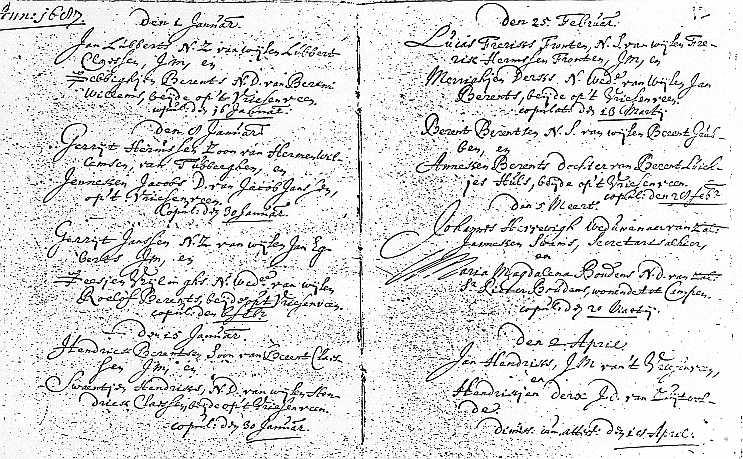 Anno 1687.
Den 2 Januar.
Jan Lubberts N.Z. van wijlen Lubbert
Claessen, J.M, en
Hebbeghijen Berents N.D. van Berent
Willems, beijde op't Vriesenveen.
copul: den 16 Januar.
den 9 Januar.
Gerrijt Hermssen Zoon van Hermen Wil-
lemsen, van Tubberghen, en
Jenneken Jacobs D. van Jacob Janssen,
op't Vriesenveen.
Copul: den 30 Januar.
Gerrijt Janssen N.Z. van wijlen Jan Eg-
berts J.M, en
Roelof Berents, beijde op't Vriesenveen.
copul: den
den 15 Januar.
Hendrick Berentsen Soon van Beerent Claes-
sen J.M, en
Swaentjen Hendricks, N.D. van wijlen Hen-
drick Claessen, beijde op't Vriesenveen.
copul: den 30 Januar.
Den 25 Februar.
Lucas Frericks Fronten, N.S. van wijlen Fre-
rik Hermssen Fronten, J.M, en
Merrighjen Dercks, N. Wede van wijlen Jan
Berents, beijde op't Vriesenveen.
copulati den 13 Martij
Berent Berentsen N.S. van wijlen Beerent
ben, en
Anneken Berents dochter van Beerent
Huls, beijde op't Vriesenveen.
copul: den 28 feb
den 5 Meert.
Johannes weduwenaer van
Janneken Swens, Secretaris alhier,
en
Maria Magdalena Boudens N.D. van
Boudens, wonende tot Campen.
copul: den 20 Martij.
den 2 April
Jan Hendricks, J.M van't Vriesenveen,
en
Hendrikjen Dercx J.d. van Zuijtwol-
de.
dimis: cum attest: den 15 April.